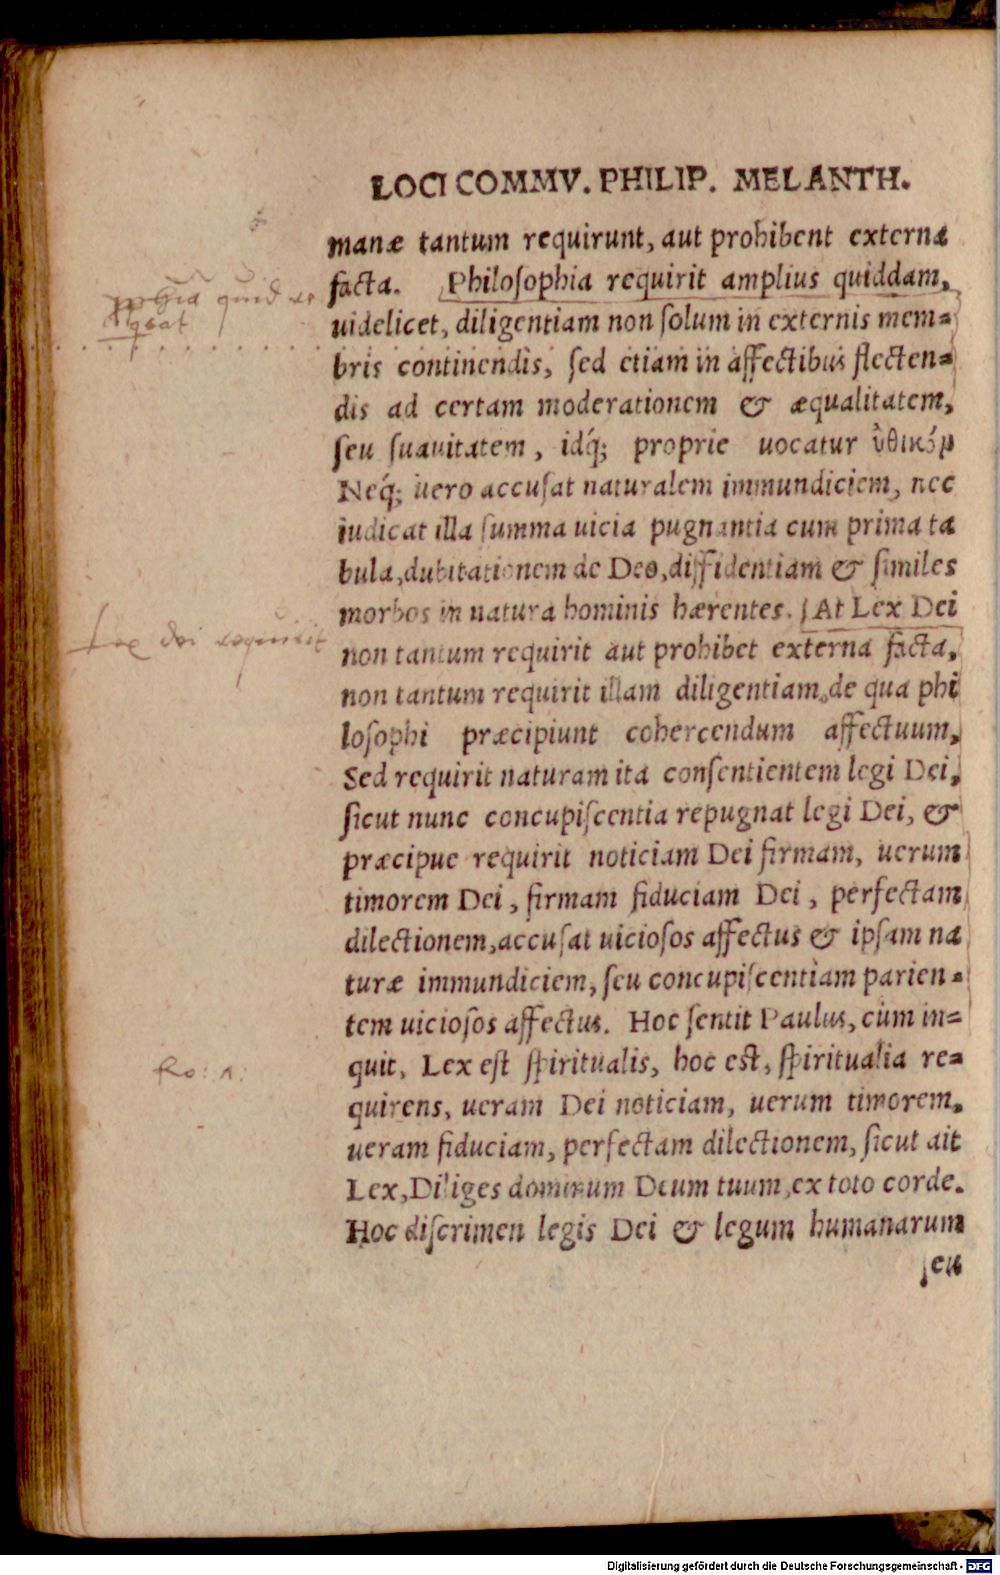 LOCI COMMV. PHILIP. MELANTH.
manæ tantum requirunt, aut prohibent externa
facta. Philosophia requirit amplius quiddam,
uidelicet, diligentiam non solum in externis mem=
bris continendis, sed etiam in affectibus flecten=
dis ad certam moderationem & æqualitatem,
seu suauitatem, idq́; proprie uocatur
Neq́; uero accusat naturalem immundiciem, nec
iudicat illa summa uicia pugnantia cum prima ta
bula, dubitationem de Deo, diffidentiam & similes
morbos in natura hominis hærentes. At Lex Dei
non tantum requirit aut prohibet externa facta,
non tantum requirit illam diligentiam, de qua phi
losophi præcipiunt cohercendum affectuum,
Sed requirit naturam ita consentientem legi Dei,
sicut nunc concupiscentia repugnat legi Dei, &
præcipue requirit noticiam Dei firmam, uerum
timorem Dei, firmam fiduciam Dei, perfectam
dilectionem, accusat uiciosos affectus & ipsam na
turæ immundiciem, seu concupiscentiam parien=
tem uiciosos affectus. Hoc sentit Paulus, cùm in=
quit, Lex est spiritualis, hoc est, spiritualia re=
quirens, ueram Dei noticiam, uerum timorem,
ueram fiduciam, perfectam dilectionem, sicut ait
Lex, Diliges dominum Deum tuum, ex toto corde.
Hoc discrimen legis Dei & legum humanarum
seu
quid
Lex dei requirit
Ro:
Digitalisierung gefördert durch die Deutsche Forschungsgemeinschaft - DFG